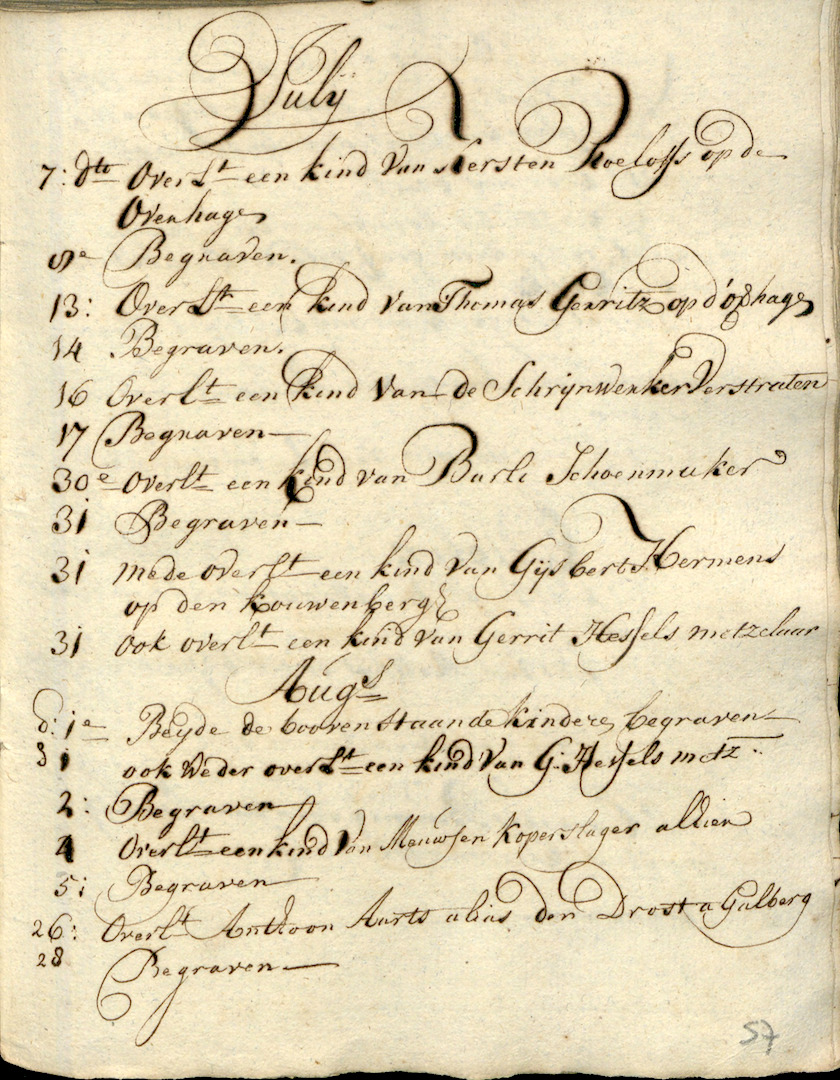 Julij
7: dto Overlt een kind van Kersten Roeloffs op de
Ovenhage
9e Begraven.
13: Overlt een kind van Thomas Gerritz op d'
14 Begraven.
16 Overlt een kind van de Schrijnwerker Verstraten
17 Begraven
30e overlt een kind van Barli Schoenmaker
31 Begraven
31 mede overlt een kind van Gijsbert Hermens
op den Kouwenberg
31 ook overlt een kind van Gerrit Hessels metzelaar
Augs
d: 1e Beyde de boovenstaande kindere begraven
1 ook weder overlt een kind van G: Hessels metz:
2: Begraven
4 Overlt een kind van Meuwsen Koperslager alhier
5: Begraven
26: Overlt Anthoon Aarts alias den Drost a Galberg
28 Begraven
57